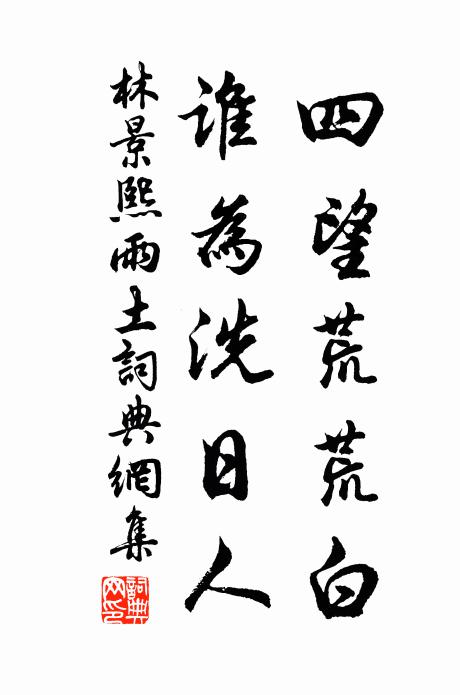 四望荒荒白
誰為洗日人
林景熙雨土詞典網集
詞典網印